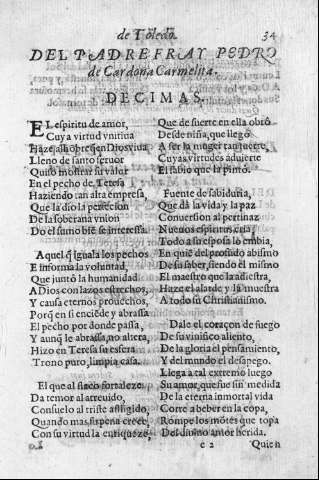 de Toledo. 34
DEL PADRE FRAY PEDRO
de Cardona Carmelita.
DECIMAS.
EL espiritu de amor,
Cuya virtud vnitiua
Haze
Lleno de santo feruor
Quiso mostrar su valor
En el pecho de Teresa
Haziendo tan alta empresa
Que la dio la perfecion
De la soberana vnion
Do el sumo biẽ se interessa.
Aquel q̃ iguala los pechos
E informa la voluntad
Que juntò la humanidad
A Dios con lazos estrechos,
Y causa eternos prouechos,
Porq̃ en si enciède y abrassa
El pecho por donde passa,
Y aunq̃ le abrassa, no altera,
Hizo en Teresa su esfera
Trono puro, limpia casa.
El que al flaco fortaleze
Da temor al atreuido,
Consuelo al triste afligido,
Quando mas su pena crece,
Con su virtud la enriqueze,
Que de suerte en ella obrò
Desde niña, que llegò
A ser la muger tan fuerte,
Cuyas virtudes aduierte
El sabio que la pintò.
Fuente de sabiduria,
Que dà la vida y la paz
Conuersion al pertinaz
Nueuos espiritus cria
Todo a su esposa lo embia,
En quiẽ del profũdo abismo
De su saber, siendo èl mismo
El maestro que la adiestra,
Haze el alarde y lo muestra
A todo su Christianismo.
Dale el coraçon de fuego
De su viuifico aliento,
De la gloria el pensamiento,
Y del mundo el desapego.
Llega a tal extremo luego
Su amor, que fue sin medida
De la eterna inmortal vida
Corre a beber en la copa,
Rompe los mõtes que topa
Del diuino amor herida.
e 2 Quien